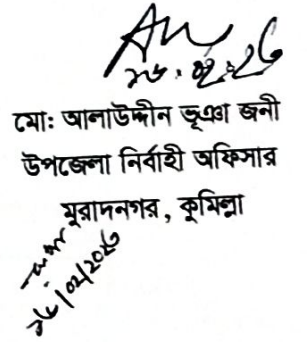 ১৬.০২.২৬
মো: আলাউদ্দীন ভূঞা জনী
উপজেলা নির্বাহী অফিসার
মুরাদনগর, কুমিল্লা
১৬/০২/২০২৬